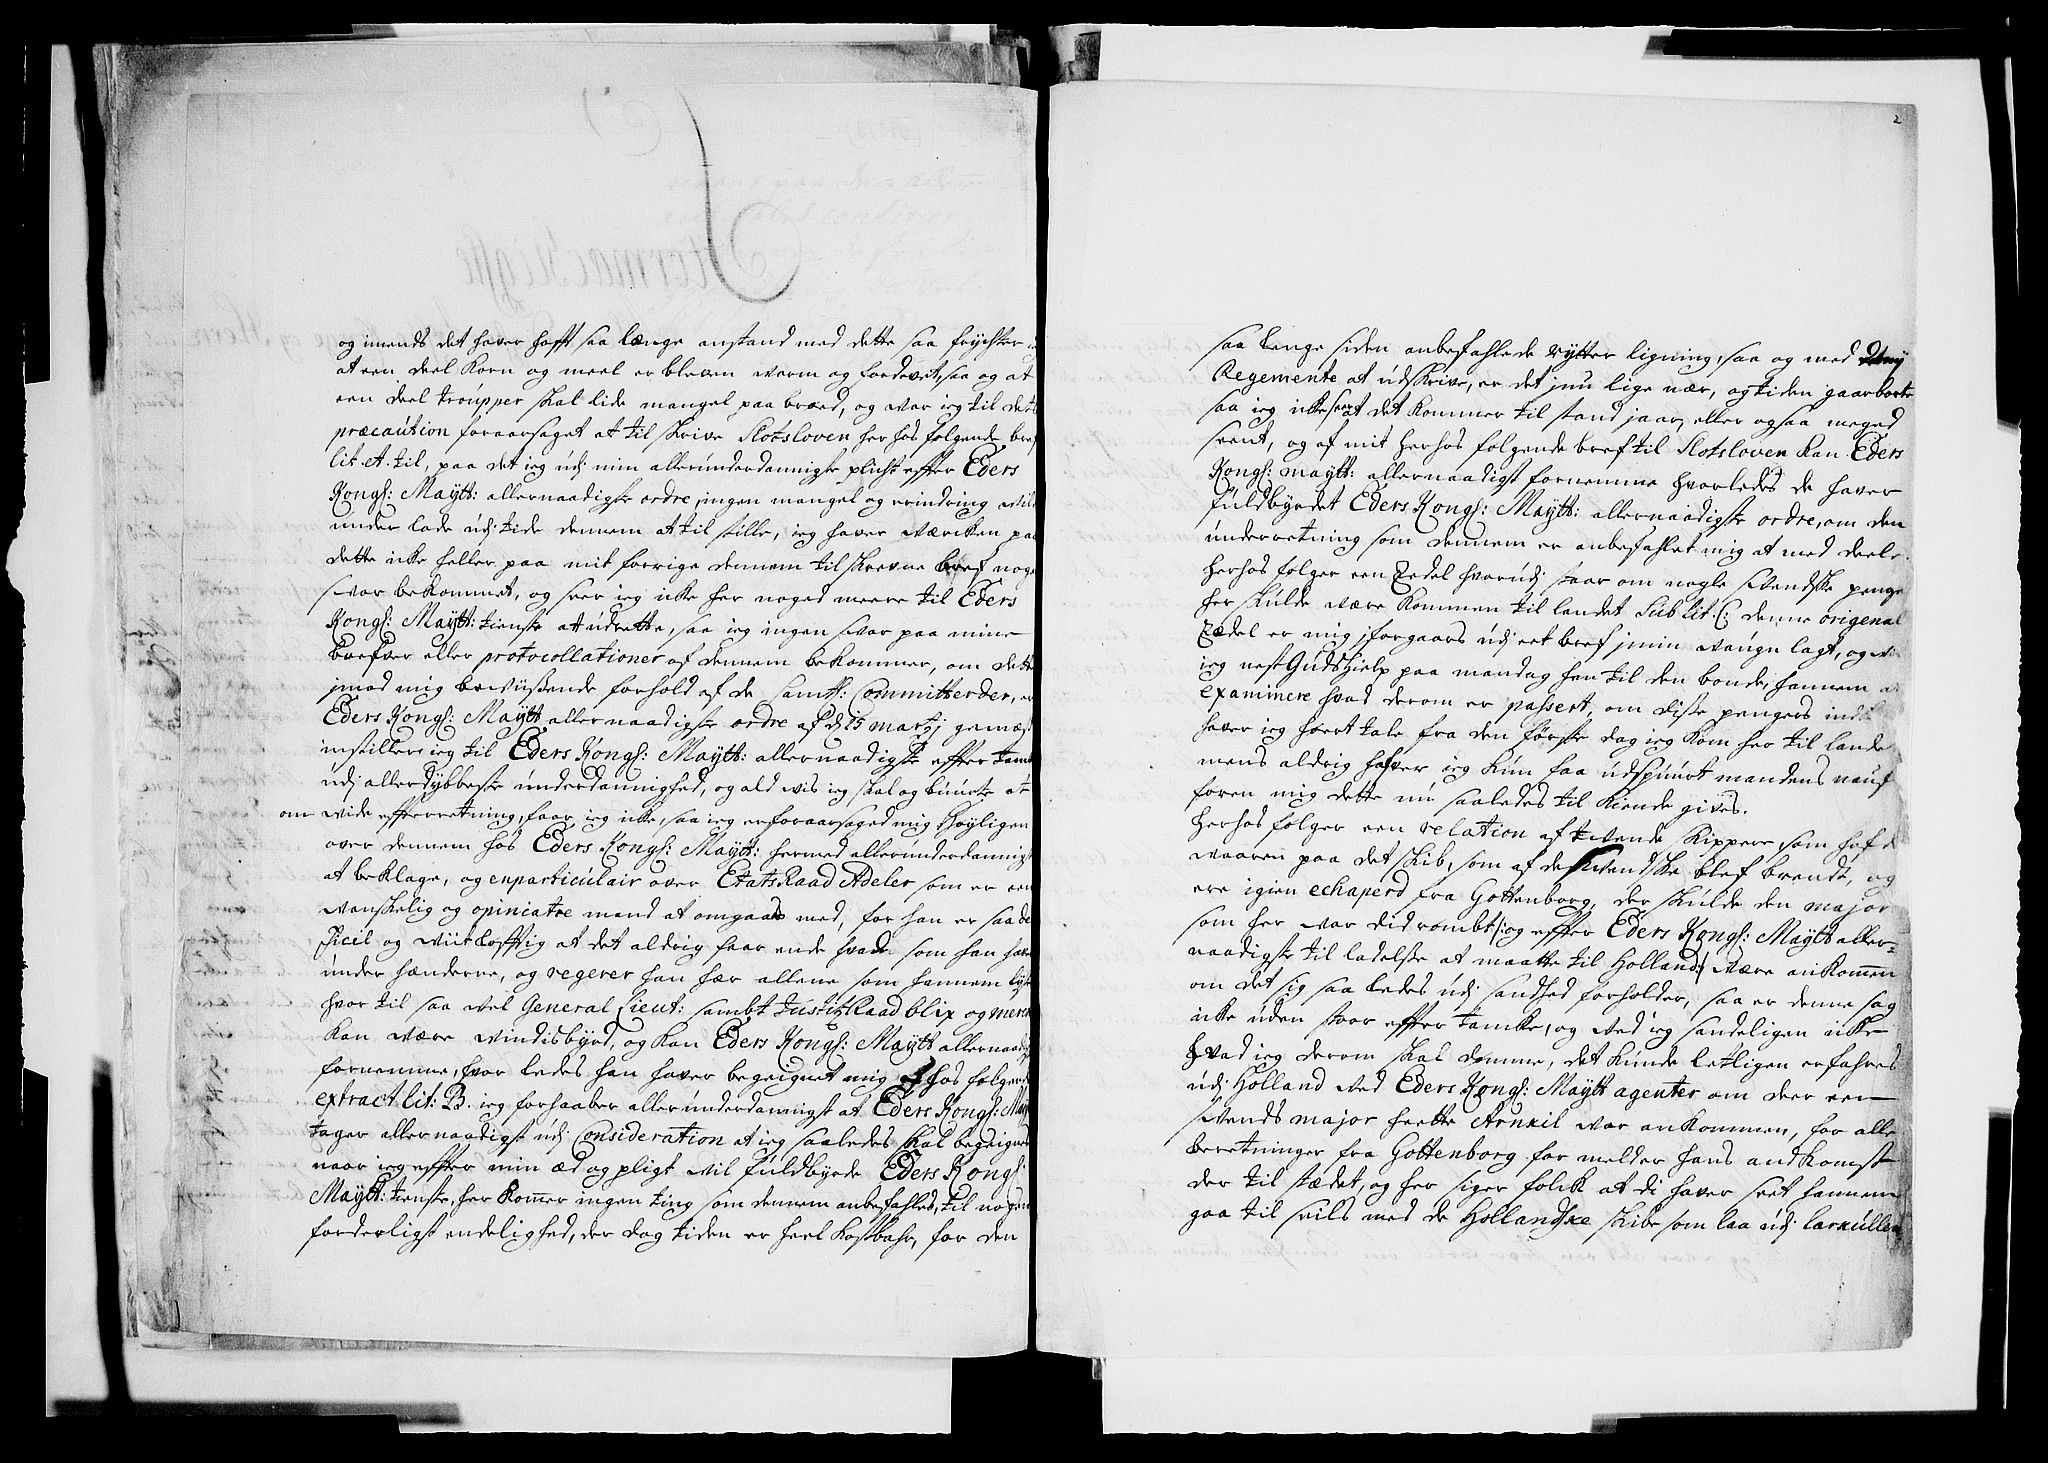 og imends det haver hafft saa længe anstand med dette saa frychter
at een deel Korn og meel er bleven warm og fordervet, saa og at
een deel troupper skal lide mangel paa brøed, og war ieg til dets
præcaution foraarsaget at til skrive Slotsloven her hos følgende bref
lit. A. til, paa det ieg udj min allerunderdannigste plicht effter Eders
Kongl: Maÿtt: allernaadigste ordre, ingen mangel og erindring wille
under lade udj tide dennem at til stille, ieg haver wærcken paa
dette icke heller paa mit forrige dennem til skrevne bref noge
svar bekommet, og seer ieg icke her noged meere til Eders
Kongl: Maÿtt: tieneste at udrette, saa ieg ingen svar paa mine
brefver eller protocollationer af dennem bekommer, om dette
jmod mig beviißende forhold af de samtl: Committerder, er
Eders Kongl: Maÿtt allernaadigste ordre af d. 15 martij gemæs
instiller ieg til Eders Kongl: Maÿtt: allernaadigste effter tanke
udj allerdybbeste underdannighed, og ald vis ieg skal og buurte at
om wide efferretning, faar ieg icke, saa ieg er foraarsaged mig høyligen
over dennem hos Eders Kongl: Maÿtt: hermed allerunderdannigst
at beklage, og enparticulair over Etats Raad Adeler som er een
wanskelig og opiniatre mand at omgaas med, for han er saa de
ficil og wiit løfftig at det aldrig faar ende hvad som han haver
under hænderne, og regerer han hær allene som hannem lyster
hvor til saa vel General Lieut: sambt Justitz Raad blix og merc
kan være windisbyrd, og kan Eders Kongl: Maÿtt allernaadigst
fornemme, hvor ledes han haver begeignet mig af hos følgende
extract lit: B. ieg forhaaber allerunderdannigst at Eders Kongl: Maÿt
tager allernaadigst udj Consideration at ieg saaledes skal begeignes
naar ieg effter min æd og pligt vil fuldbyrde Eders Kongl:
Maÿtt: tienste, her kommer ingen ting som dennem anbefahles, til nogen
forderligst endelighed, der dog tiden er heel kostbahr, for den
2
saa lenge siden anbefahlede rytter ligning, saa og med
Regemente at udskrive, er det jnu lige nær, og tiden gaar borte
saa ieg icke seer at det kommer til stand jaar, eller ogsaa meged
seent, og af mit herhos følgende bref til Slotsloven kan Eders
Kongl: maÿtt: allernaadigst fornemme hvorledes de haver
fuldbyrdet Eders Kongl: Maÿtt: allernaadigste ordre, om den
underretning som dennem er anbefahlet mig at med deele.
herhos følger een Zedel hvorudj staar om nogle Svendske penge
her skulde være kommen til landet Sub lit: C: denne origenal
Zædel er mig jforgaars udj eet bref jmin vaugn lagt, og wil
ieg nest Guds hielp paa mandag hen til den bonde, hannem at
examinere hvad derom er passert, om diße pengers
haver ieg hoert tale fra den første dag ieg kom her til lande
mens aldrig hafver ieg kun faa udspuurt mandens nauf
foren mig dette nu saaledes til kiende gives.
herhos følger een relation af tvende skippere som haf de
waaren paa det skib, som af de Svendske blef brende, og
ere igien echaperd fra Gottenborg, der skulde den major
som her var did rømbt /: og effter Eders Kongl: Maÿtt aller=
naadigste til ladelse at maatte til Holland :/ være ankommen
om det sig saa ledes udj sandhed forholder, saa er denne sag
icke uden stoor effter tancke, og ved ieg sandeligen icke
hvad ieg derom skal dømme, det kunde letligen erfahres
udj Holland ved Eders Kongl: Maÿtt agenter om deer een
Svends major heette Arnkil var ankommen, for alle
beretninger fra Gottenborg for melder hans andkomst
der til stædet, og her siger folck at di haver seet hannem
gaa til seils med de Hollandske skibe som laa udj larkullen